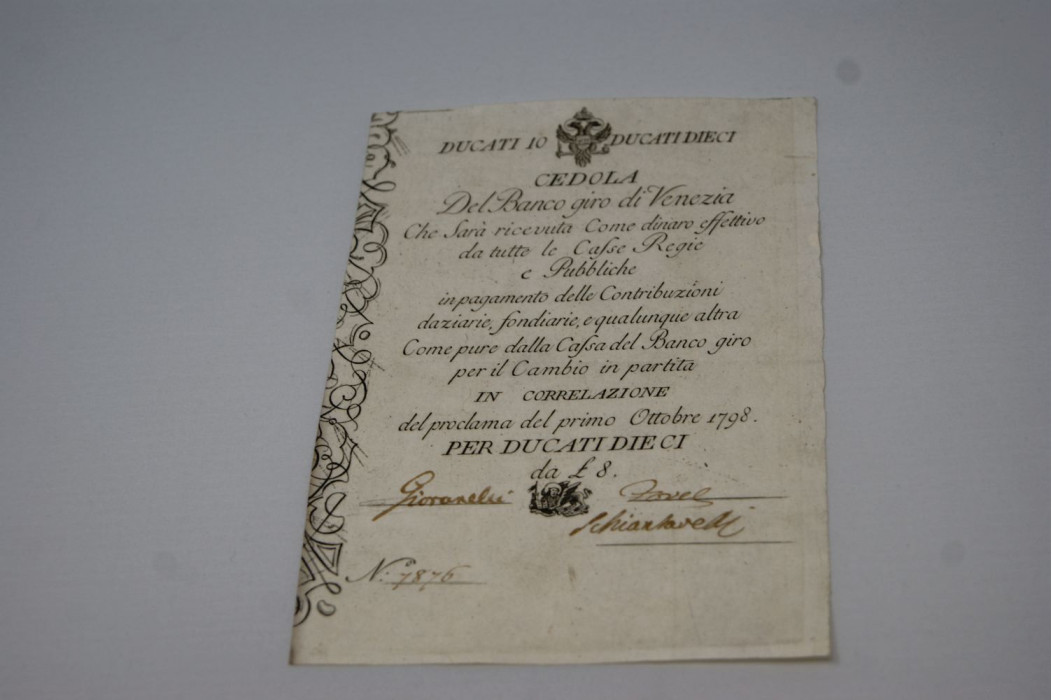 DUCATI 10 DUCATI DIECI
CEDOLA
Del Banco giro di Venezia
Che Sarà ricevuta Come dinaro effettivo
da tutte le Caſse Regie
e Pubbliche
in pagamento delle Contribuzioni
daziarie, fondiarie, e qualunque altra
Come pure dalla Caſsa del Banco giro
per il Cambio in partita
IN CORRELAZIONE
del proclama del primo Ottobre 1798.
PER DUCATI DIECI
da £ 8.
N.º 7876